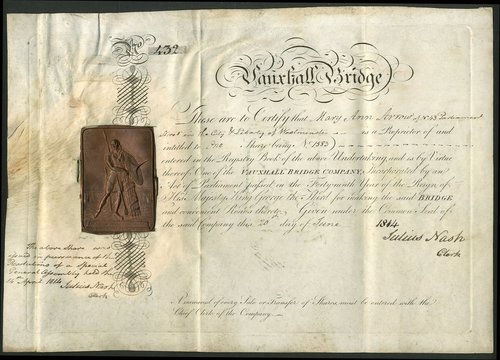 No. 432
Vauxhall Bridge
These are to Certify that Mary Ann Arrow of No. 48 Parliament
Street in the City & Liberty of Westminster is a Proprietor of and
intitled to One Share being No. 1583
entered in the Registry Book of the above Undertaking, and is by Virtue
thereof One of the VAUXHALL BRIDGE COMPANY, Incorporated by an
Act of Parliament passed in the Fortyninth Year of the Reign of
His Majesty King George the Third for making the said BRIDGE
and convenient Roads thereto, Given under the Common Seal of
the said Company this 20 day of June 1814
Julius Nash
Clerk
The above Share was
issued in pursuance of the
Resolutions of a Special
General Assembly held the
14 April 1814 Julius Nash
Clerk
A memorial of every Sale or Transfer of Shares, must be entered with the
Chief Clerk of the Company.